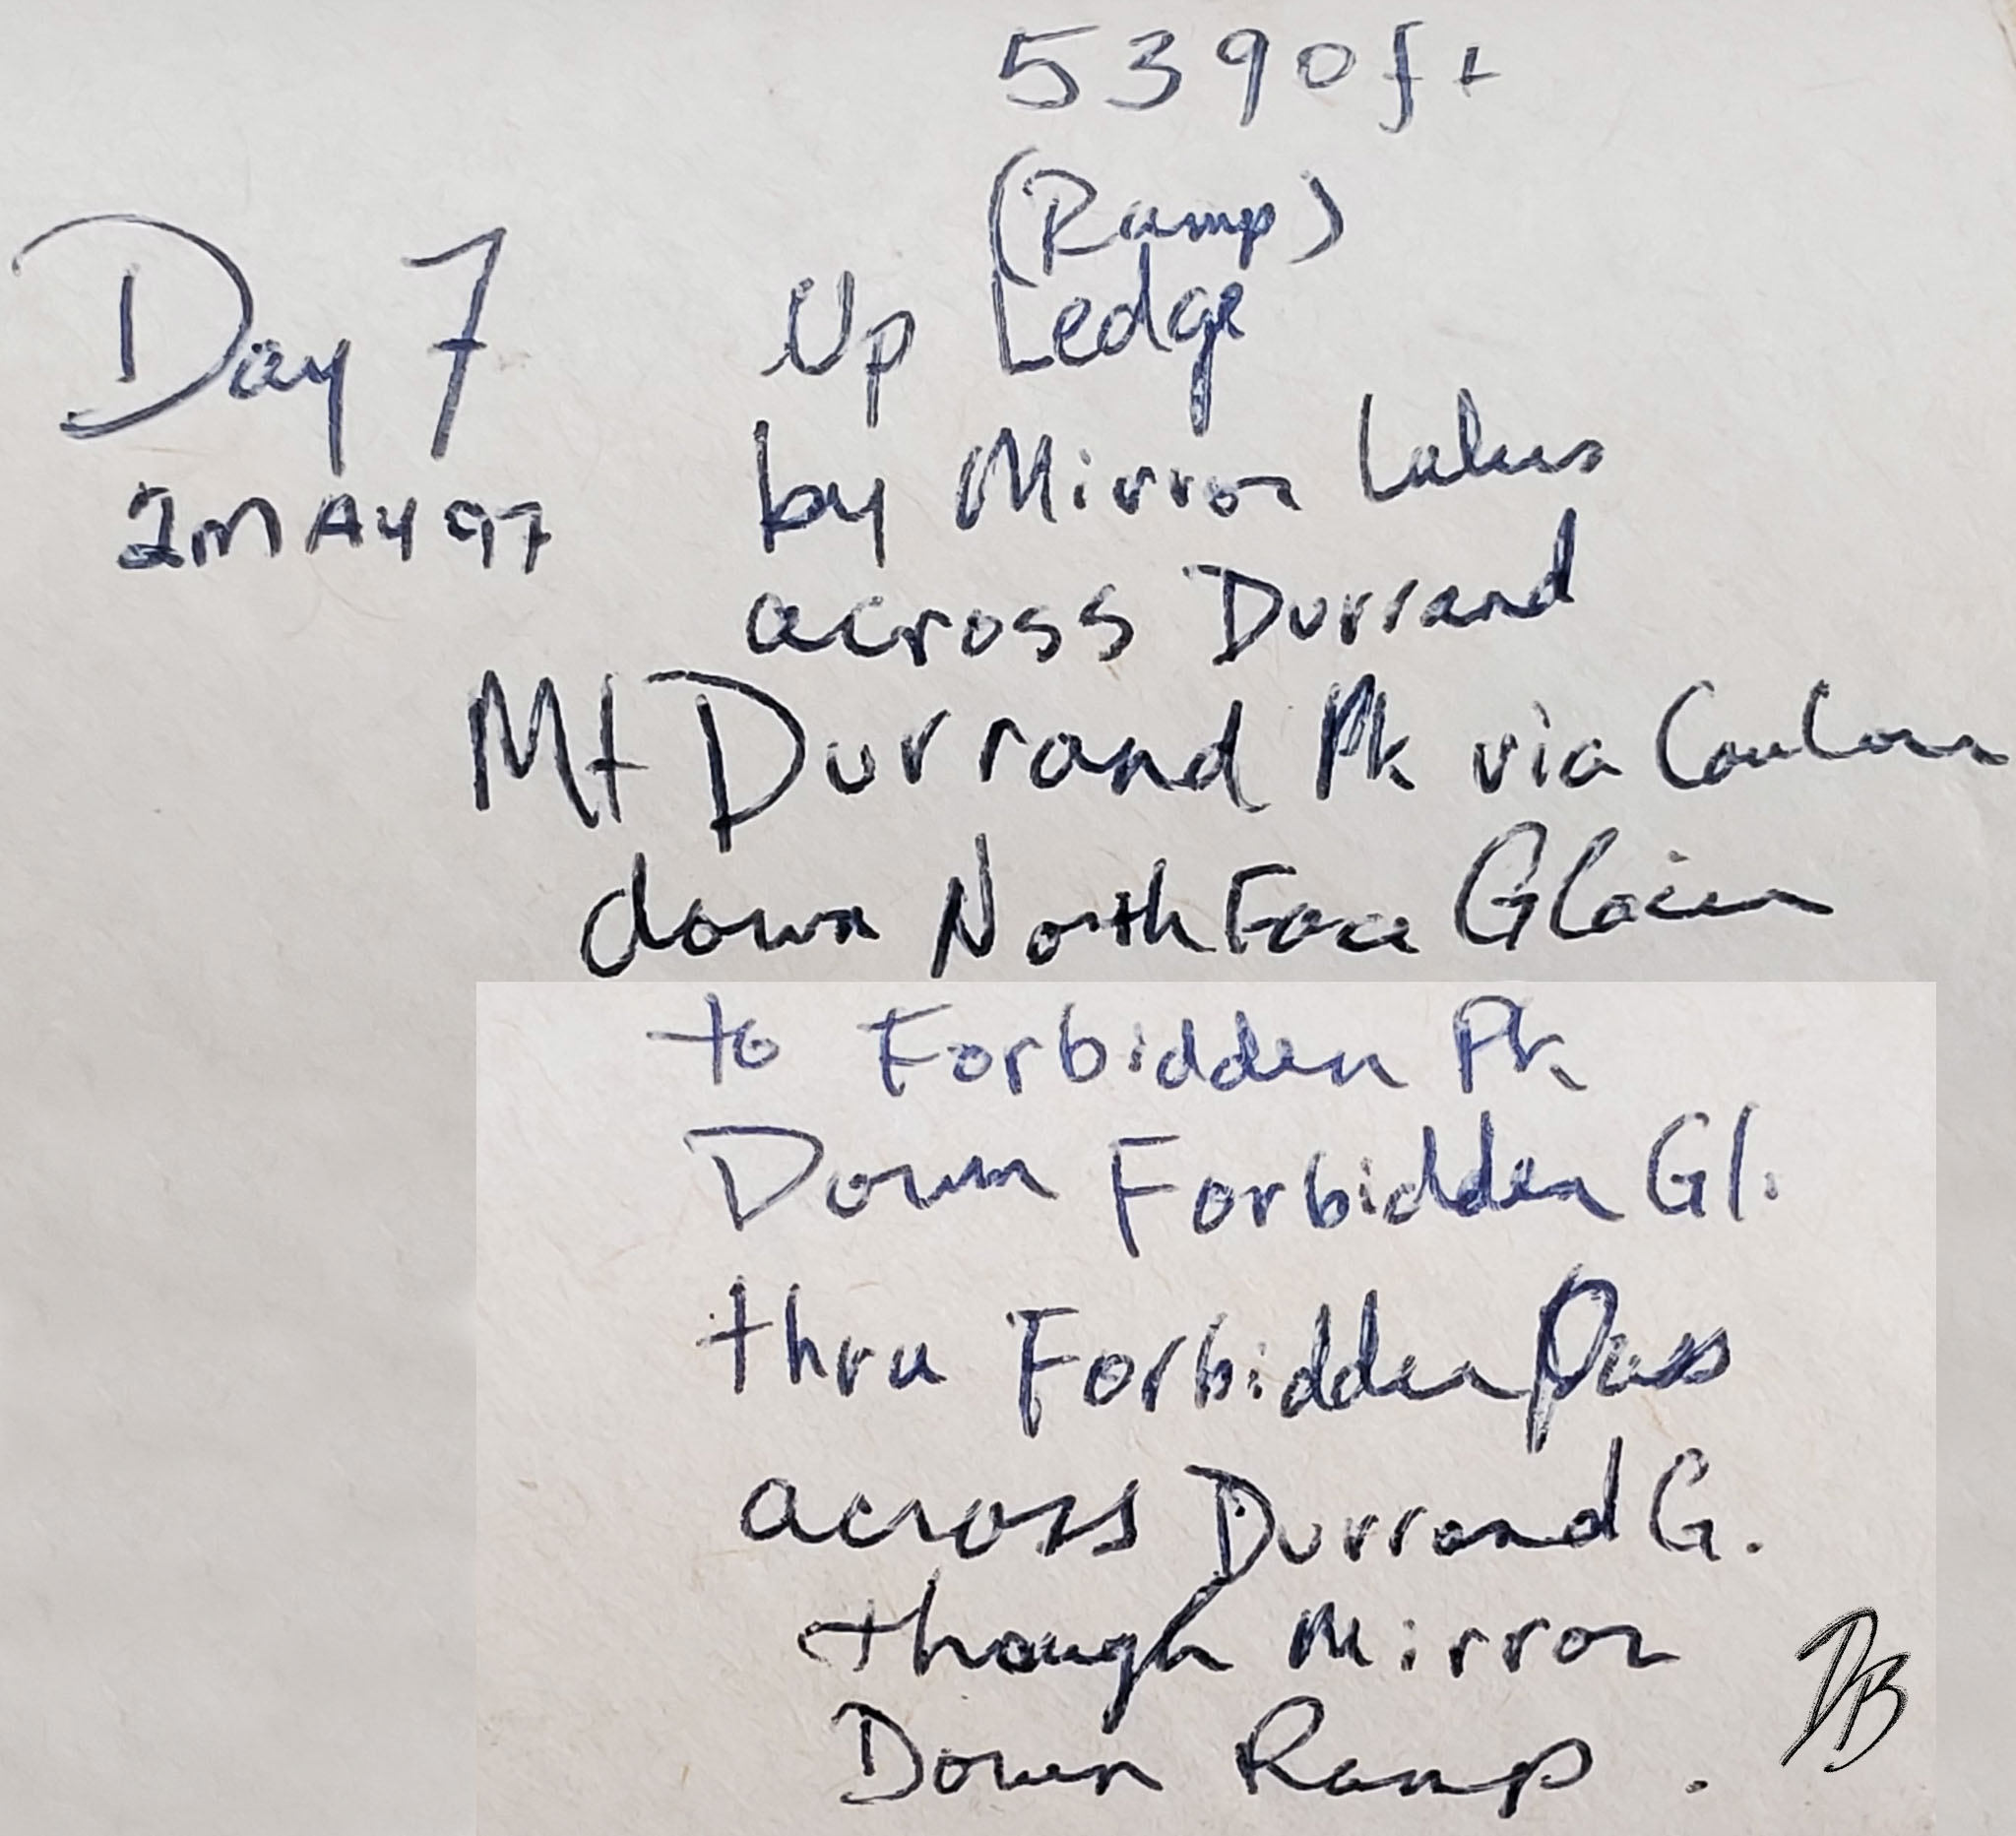 5390 ft
(Ramp)
Day 7
Up Ledge
2MAY97
by Mirror Lakes
across Durrand
Mt Durrand Pk via Couloir
down North Face Glacier
to Forbidden Pk
Down Forbidden Gl.
thru Forbidden Pass
across Durrand G.
though Mirror
Down Ramp.
DB